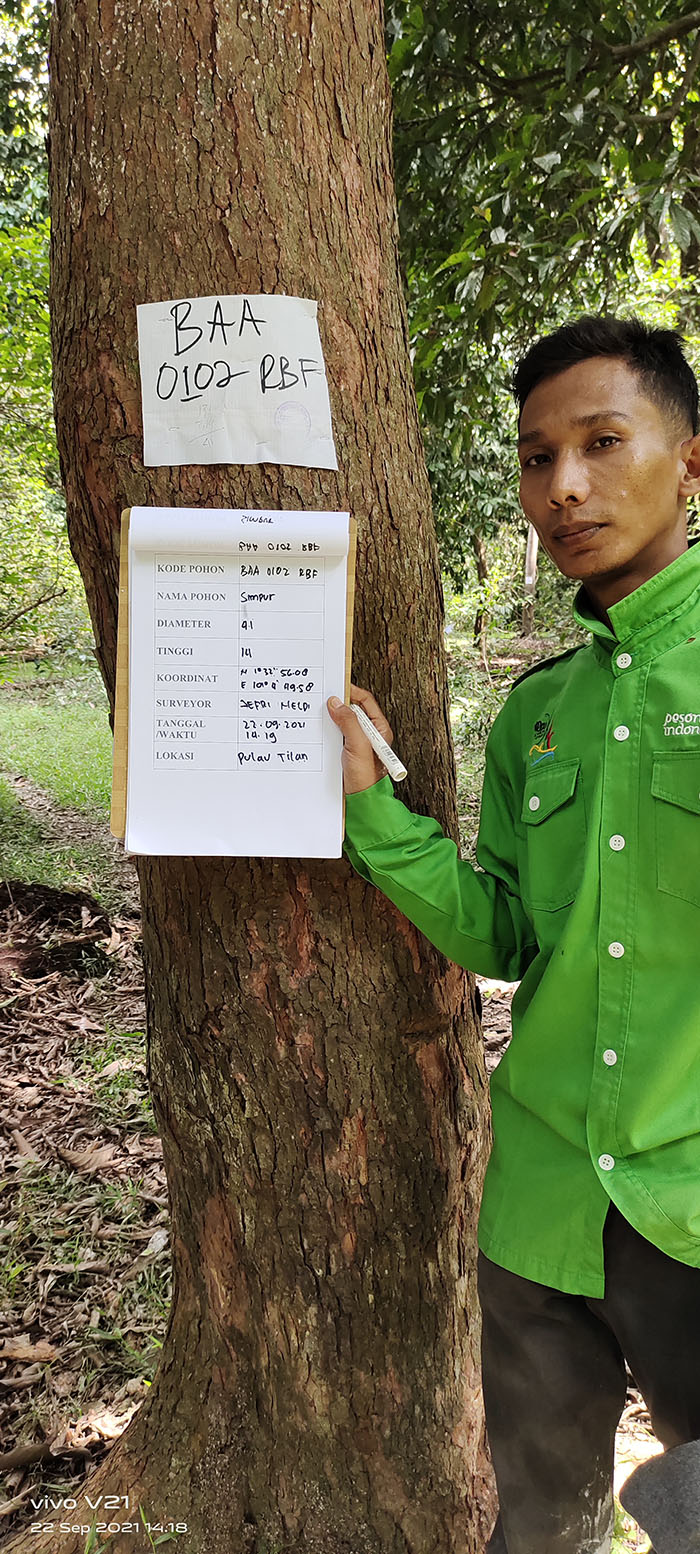 BAA
0102 RBF
BAA 0102 RBF
KODE POHON BAA 0102 RBF
NAMA POHON Simpur
DIAMETER 41
TINGGI 14
KOORDINAT N 1°32' 56.08
E 101°9' 49.58
SURVEYOR JEFRI MELDI
TANGGAL 22.09.2021
/WAKTU 14.19
LOKASI Pulau Tilan
vivo V21
22 Sep 2021 14.18